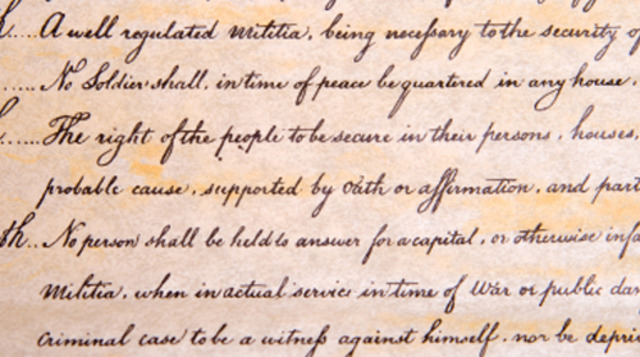 .....A well regulated Militia, being necessary to the security
.....No Soldier shall, in time of peace be quartered in any house.
......The right of the people to be secure in their persons, houses,
probable cause, supported by Oath or affirmation, and
th..No person shall be held to answer for a capital, or otherwise
Militia, when in actual service in time of War or public
criminal case to be a witness against himself, nor be